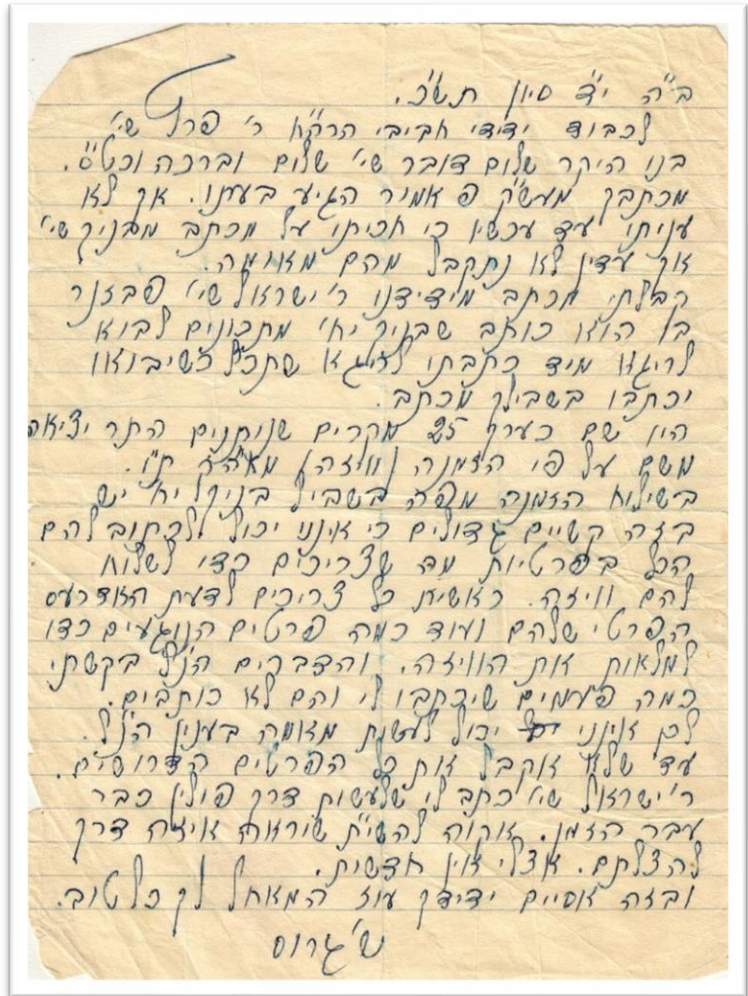 ב"ה י"ד סיון תש"כ.
לכבוד ידידי חביבי הרה"ח ר' פרץ שי'
בנו היקר שלום דובר שי' שלום וברכה וכט"ס.
מכתבך מעש"ק פ אמור הגיע בעתו. אך לא
עניתי עד עכשיו כי חכיתי על מכתב מבניך שי'
אך עדין לא נתקבל מהם מאומה.
קבלתי מכתב מידידנו ר' ישראל שי' פבזנר
בו הוא כותב שבניך יחי' מתכונים לבוא
לריגא מיד כתבתי לריגא שתכף כשיבואו
יכתבו בשבילך מכתב.
הין שם כערך 25 מקרים שנותנים התר יציאה
משם על פי הזמנה (וויזה) מאה"ק ת"ו.
בשילוח הזמנה מפה בשביל בניך יחי' יש
בזה קשיים גדולים כי אינני יכול לכתוב להם
הכל בפרטיות מה שצריכים כדי לשלוח
להם וויזה. ראשית כל צריכים לדעת האדרעס
הפרטי שלהם ועוד כמה פרטים הנוגעים כדי
למלאות את הוויזה. והדברים הנ"ל בקשתי
כמה פעמים שיכתבו לי והם לא כותבים.
לכן אינני יכול לעשות מאומה בענין הנ"ל.
עד שלא אקבל את כל הפרטים הדרושים.
ר' ישראל שי' כתב לי שלעשות דרך פולין כבר
עבר הזמן. אקוה להשי"ת שיראה איזה דרך
להצלתם. אצלי אין חדשות.
ובזה אסיים ידידך עוז המאחל לך כל טוב.
ש' גרוס